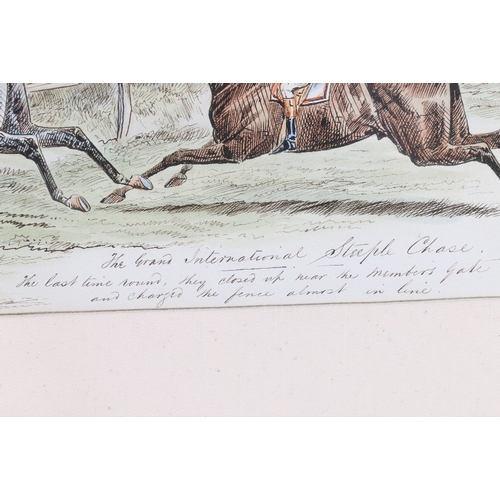 The Grand International Steeple Chase.
The last time round, they closed up near the members Gate
and charged the fence almost in line.